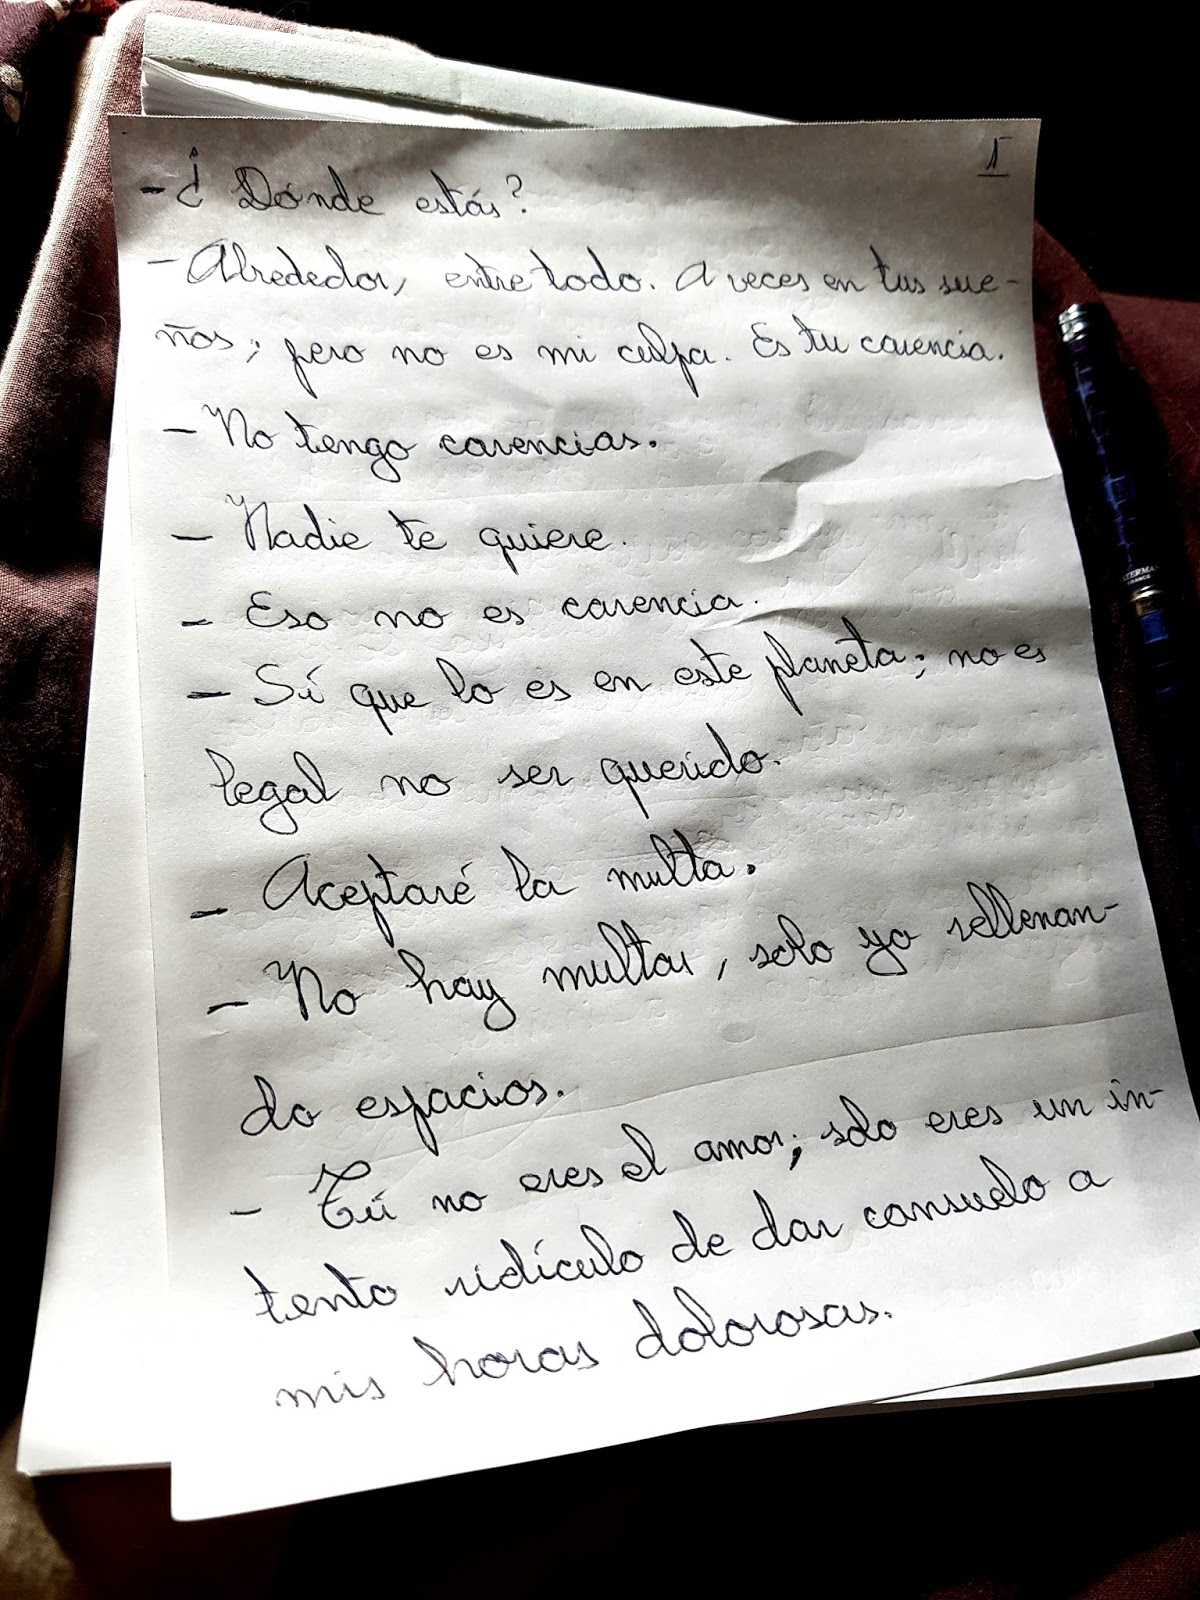 1
- ¿Dónde estás?
- Alrededor, entre todo. A veces en tus sue-
ños; pero no es mi culpa. Es tu carencia.
- No tengo carencias.
- Nadie te quiere.
- Eso no es carencia.
- Sí que lo es en este planeta; no es
legal no ser querido.
- Aceptaré la multa.
- No hay multas, solo yo rellenan-
do espacios.
- Tú no eres el amor; solo eres un in-
tento ridículo de dar consuelo a
mis horas dolorosas.
WATERMAN
FRANCE